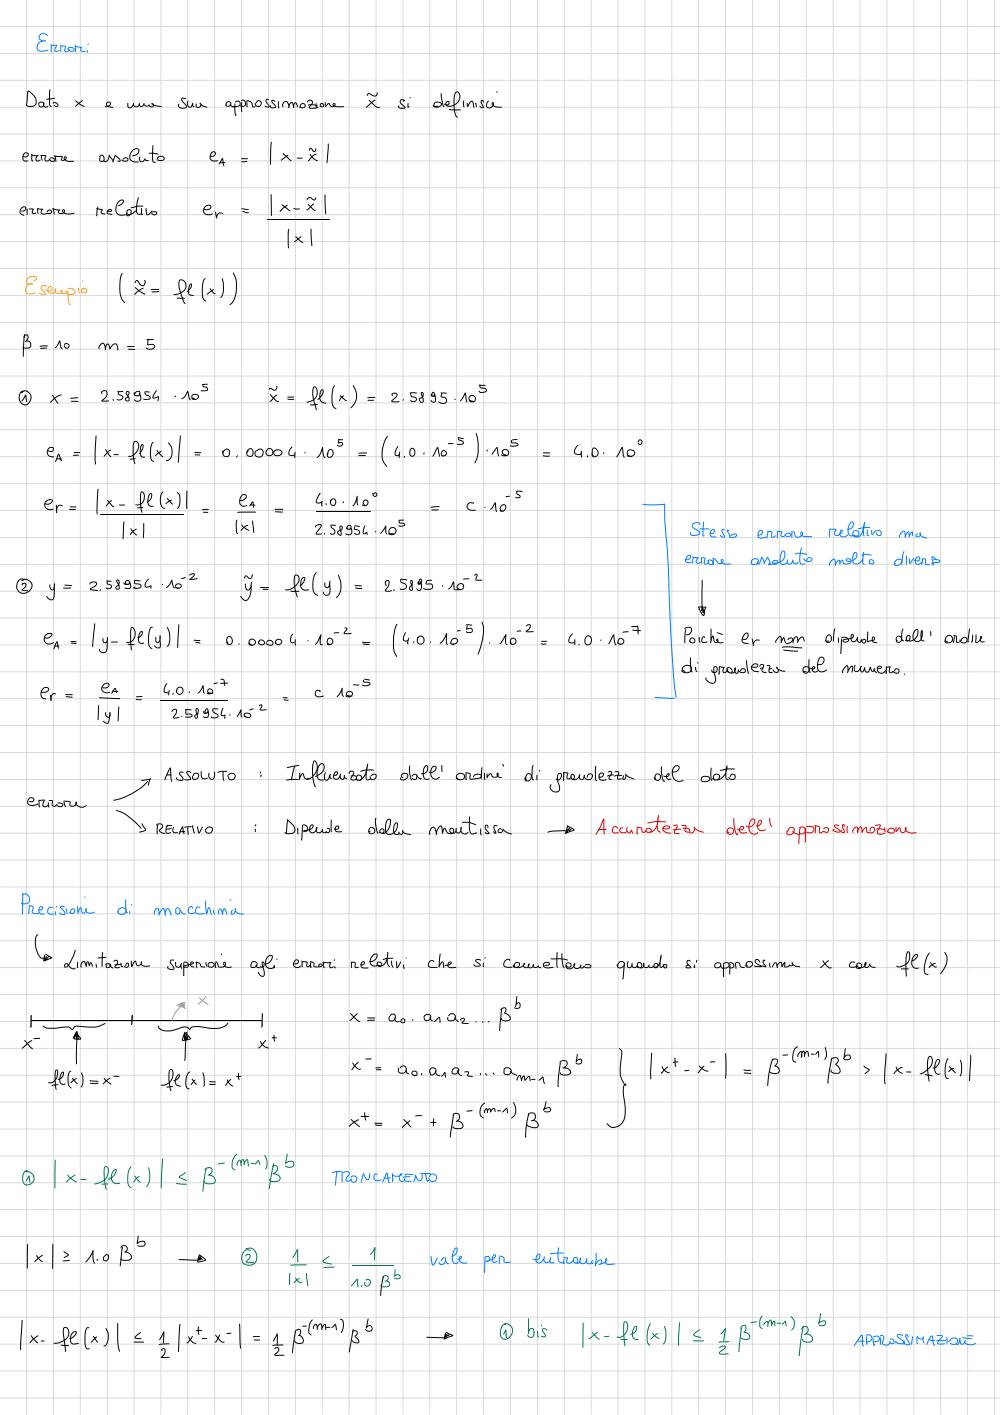 Errori
Dato x e una sua approssimazione x̃ si definisce
errore assoluto e_A = |x - x̃|
errore relativo e_r = |x - x̃| / |x|
Esempio ( x̃ = fl(x) )
β = 10 m = 5
① x = 2.58954 · 10^5 x̃ = fl(x) = 2.5895 · 10^5
e_A = |x - fl(x)| = 0.00004 · 10^5 = (4.0 · 10^-5) · 10^5 = 4.0 · 10^0
e_r = |x - fl(x)| / |x| = e_A / |x| = 4.0 · 10^0 / 2.58954 · 10^5 = c · 10^-5
② y = 2.58954 · 10^-2 ỹ = fl(y) = 2.5895 · 10^-2
e_A = |y - fl(y)| = 0.00004 · 10^-2 = (4.0 · 10^-5) · 10^-2 = 4.0 · 10^-7
e_r = e_A / |y| = 4.0 · 10^-7 / 2.58954 · 10^-2 = c 10^-5
Stesso errore relativo ma
errore assoluto molto diverso
↓
Poiché er non dipende dall' ordine
di grandezza del numero.
errore
→ ASSOLUTO : Influenzato dall' ordine di grandezza del dato
→ RELATIVO : Dipende dalla mantissa → Accuratezza dell' approssimazione
Precisione di macchina
↳ Limitazione superiore agli errori relativi che si commettono quando si approssima x con fl(x)
x
x^- x^+
fl(x) = x^- fl(x) = x^+
x = a0. a1 a2 ... β^b
x^- = a0. a1 a2 ... a_m-1 β^b
x^+ = x^- + β^-(m-1) β^b
|x^+ - x^-| = β^-(m-1) β^b > |x - fl(x)|
① |x - fl(x)| ≤ β^-(m-1) β^b TRONCAMENTO
|x| ≥ 1.0 β^b → ② 1 / |x| ≤ 1 / 1.0 β^b vale per entrambe
|x - fl(x)| ≤ 1/2 |x^+ - x^-| = 1/2 β^-(m-1) β^b → ① bis |x - fl(x)| ≤ 1/2 β^-(m-1) β^b APPROSSIMAZIONE